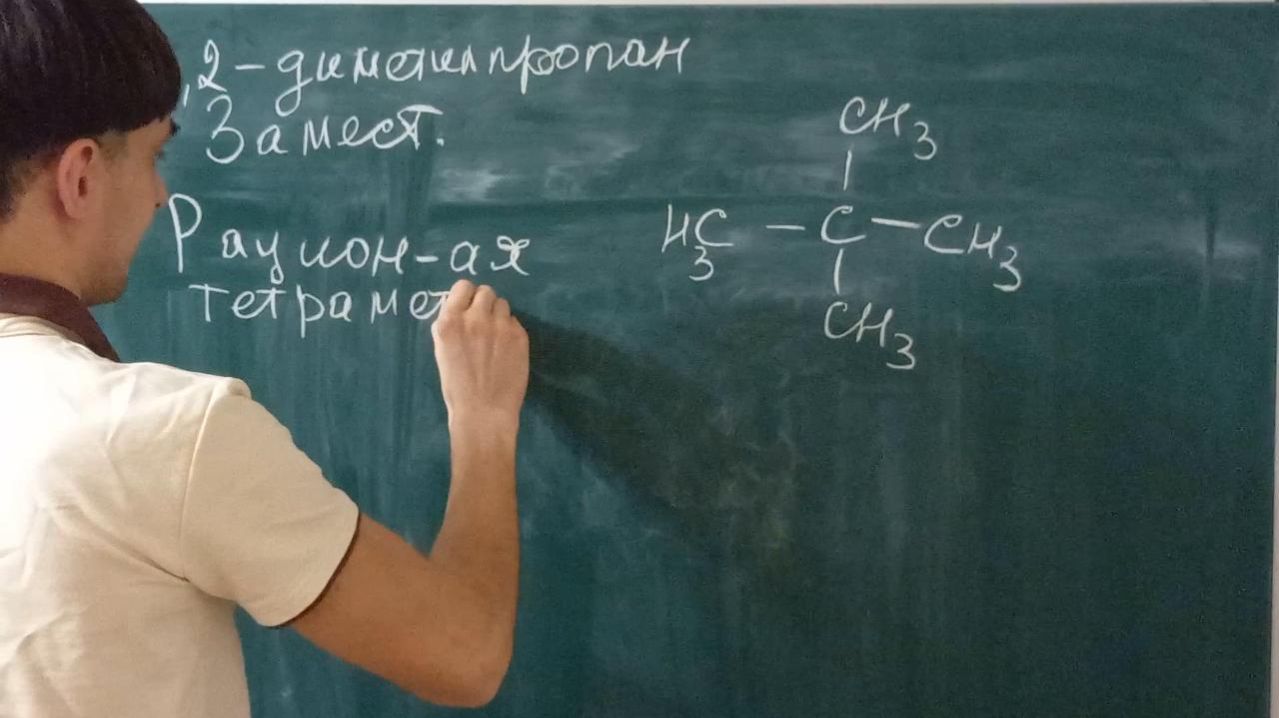 ,2-диметилпропан
Замест.
Рацион-ая
тетрамет
CH3
|
H3C - C - CH3
|
CH3